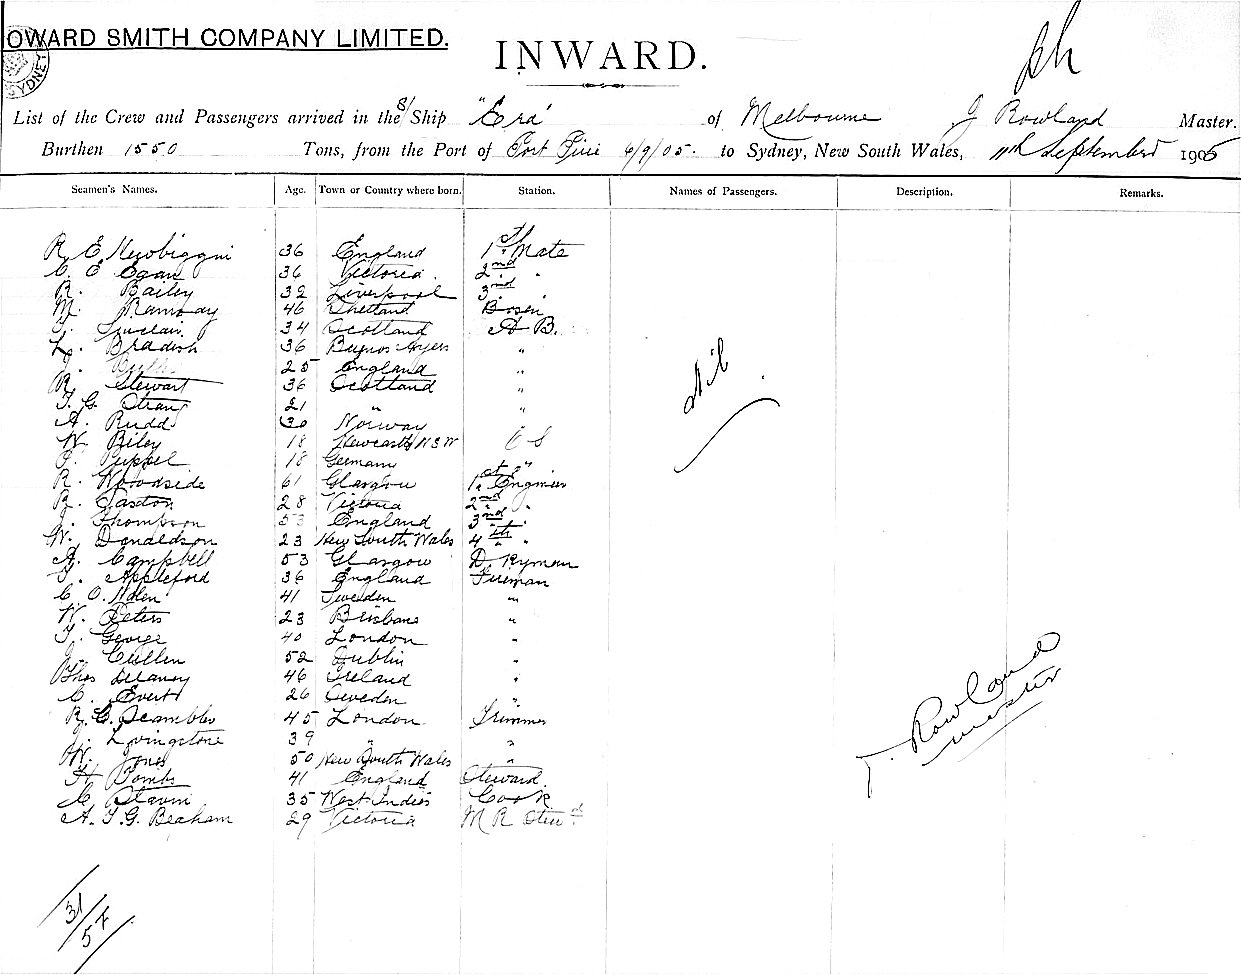 OWARD SMITH COMPANY LIMITED.
SYDNEY
INWARD.
List of the Crew and Passengers arrived in the S/ Ship "Era" of Melbourne J Rowland Master.
Burthen 1550 Tons, from the Port of Port Pirie 6/9/05. to Sydney, New South Wales, 11th September 1905
Seamen's Names. Age. Town or Country where born. Station. Names of Passengers. Description. Remarks.
R. E. Newbiggin 36 England 1st Mate
C. E Egan 36 Victoria. 2nd "
R. Bailey 32 Liverpool 3rd "
M. Ramsay 46 Shetland Bosen
Sinclair 34 Scotland A B.
L. Bradish 36 Buenos Ayres "
25 England "
R. Stewart 36 Scotland "
T. G. Strang 21 " "
A. Rudd 30 Norway
W. Riley 18 Newcastle NSW O S
Puppel 18 Germany "
R. Woodside 61 Glasgow 1st Engineer
R. Saxton 28 Victoria 2nd "
J. Thompson 53 England 3rd "
W. Donaldson 23 New South Wales 4th "
A. Campbell 53 Glasgow D. Kyman
T. Appleford 36 England Fireman
C. O. Nolen 41 Sweden "
W. Peters 23 Brisbane "
T. George 40 London "
J. Cullen 52 Dublin "
Thos Delaney 46 Ireland "
C. Evert 26 Sweden "
R. C. Scambler 45 London Trimmer
J. Livingstone 39 " "
W. Jones 50 New South Wales "
H Tombs 41 England Steward
C. Stavin 35 West Indies Cook
A. T. G. Beaham 29 Victoria M R Stewd
Nil.
J. Rowland
master
31/
57